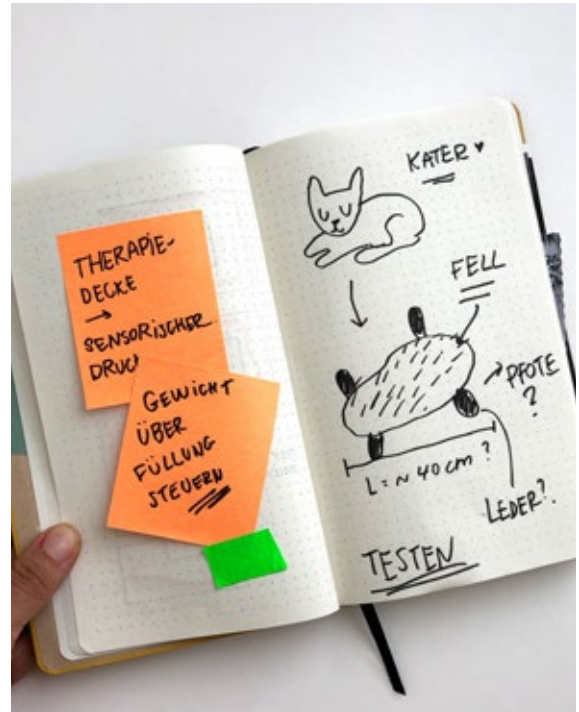 THERAPIE-
DECKE
→
SENSORISCHER
GEWICHT
ÜBER
FÜLLUNG
STEUERN
KATER ♥
FELL
→ PFOTE
?
L = ~ 40 cm ?
LEDER?
TESTEN